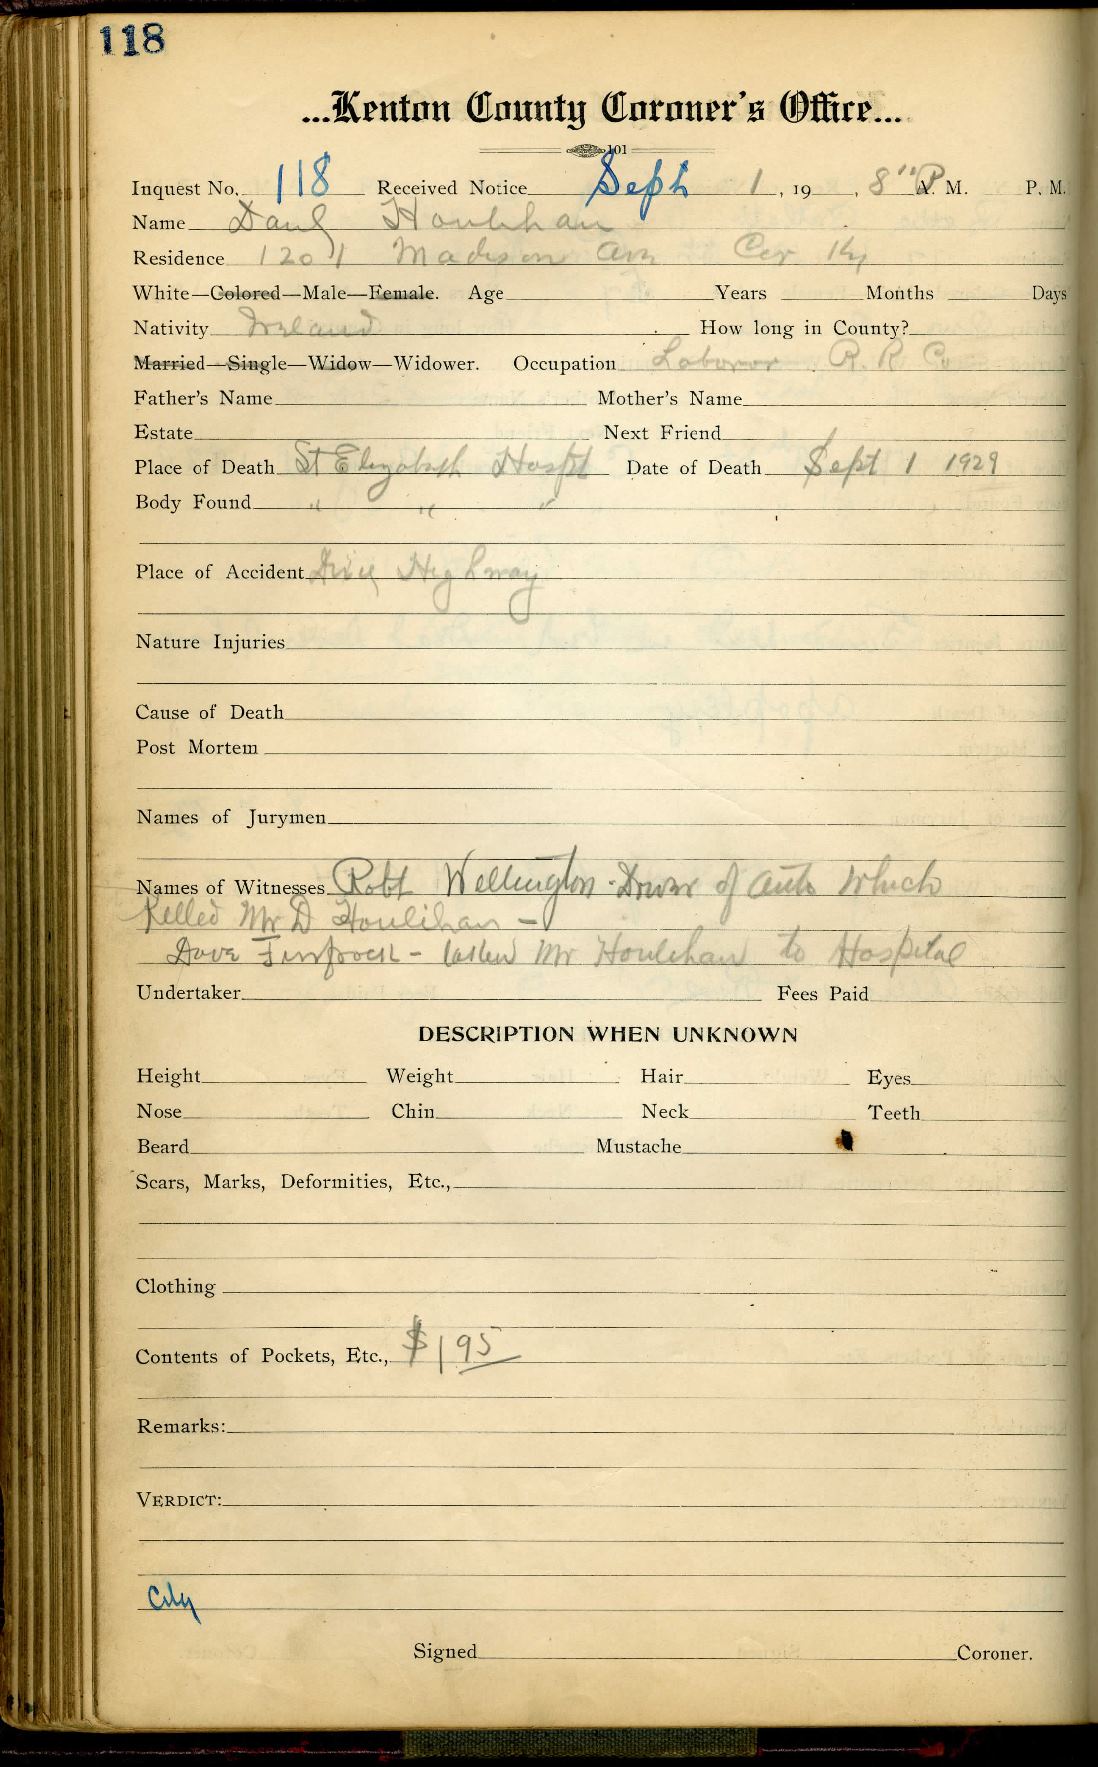 118
...Kenton County Coroner's Office...
101
Inquest No. 118 Received Notice Sept 1, 19 , 8 P. M. P. M.
Name Houlihan
Residence 1201 Madison Ave Cov Ky
White—Colored—Male—Female. Age Years Months Days
Nativity Ireland How long in County?
Married—Single—Widow—Widower. Occupation Laborer R. R. Co
Father's Name Mother's Name
Estate Next Friend
Place of Death St Elizabeth Hospt Date of Death Sept 1 1929
Body Found " " "
Place of Accident Dixie Highway
Nature Injuries
Cause of Death
Post Mortem
Names of Jurymen
Names of Witnesses Robt Wellington - Driver of Auto Which
Killed Mr D Houlihan -
Dave - taken Mr Houlihan to Hospital
Undertaker Fees Paid
DESCRIPTION WHEN UNKNOWN
Height Weight Hair Eyes
Nose Chin Neck Teeth
Beard Mustache
Scars, Marks, Deformities, Etc.,
Clothing
Contents of Pockets, Etc., $1 95
Remarks:
VERDICT:
City
Signed Coroner.